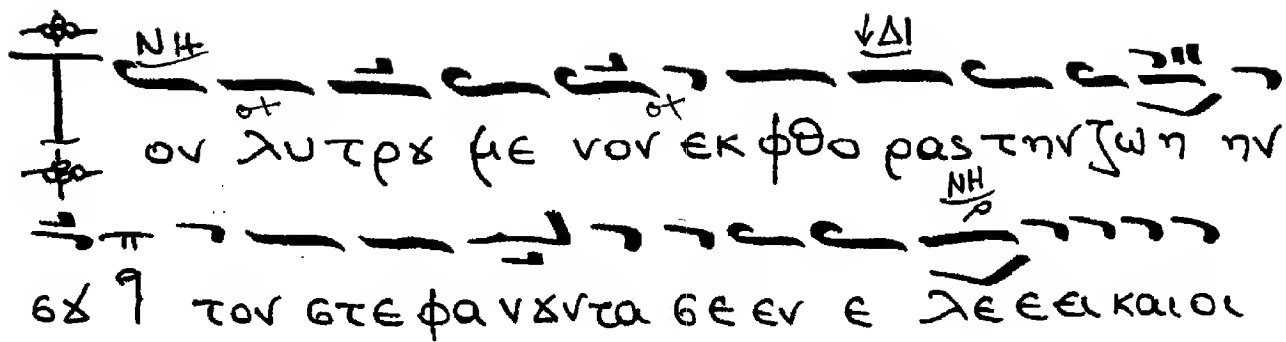 ΝΗ ↓ΔΙ
Τον λυτρȣ με νον εκ φθο ρας την ζω η ην
ΝΗ
σȣ τον στε φα νȣντα σε εν ε λε ε ει και οι